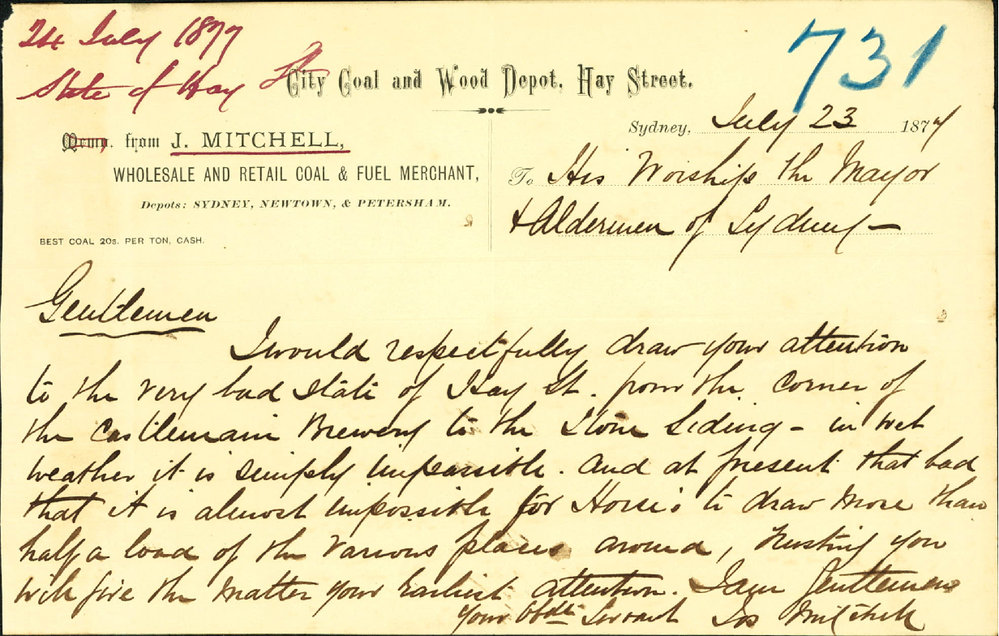 24 July 1877
State of Hay St
731
City Coal and Wood Depot, Hay Street.
Sydney, July 23 1877
Memo. from J. MITCHELL,
WHOLESALE AND RETAIL COAL & FUEL MERCHANT,
Depots: SYDNEY, NEWTOWN, & PETERSHAM.
BEST COAL 20s. PER TON, CASH.
To His Worship the Mayor
& Aldermen of Sydney —
Gentlemen
I would respectfully draw your attention
to the very bad state of Hay St. from the corner of
the Castlemain Brewery to the Stone Siding — in wet
weather it is simply impassible. And at present that bad
that it is almost impossible for Horses to draw more than
half a load of the various places around, trusting you
will give the matter your Earliest attention. I am Gentlemen
Your Obdt Servant Jos Mitchell